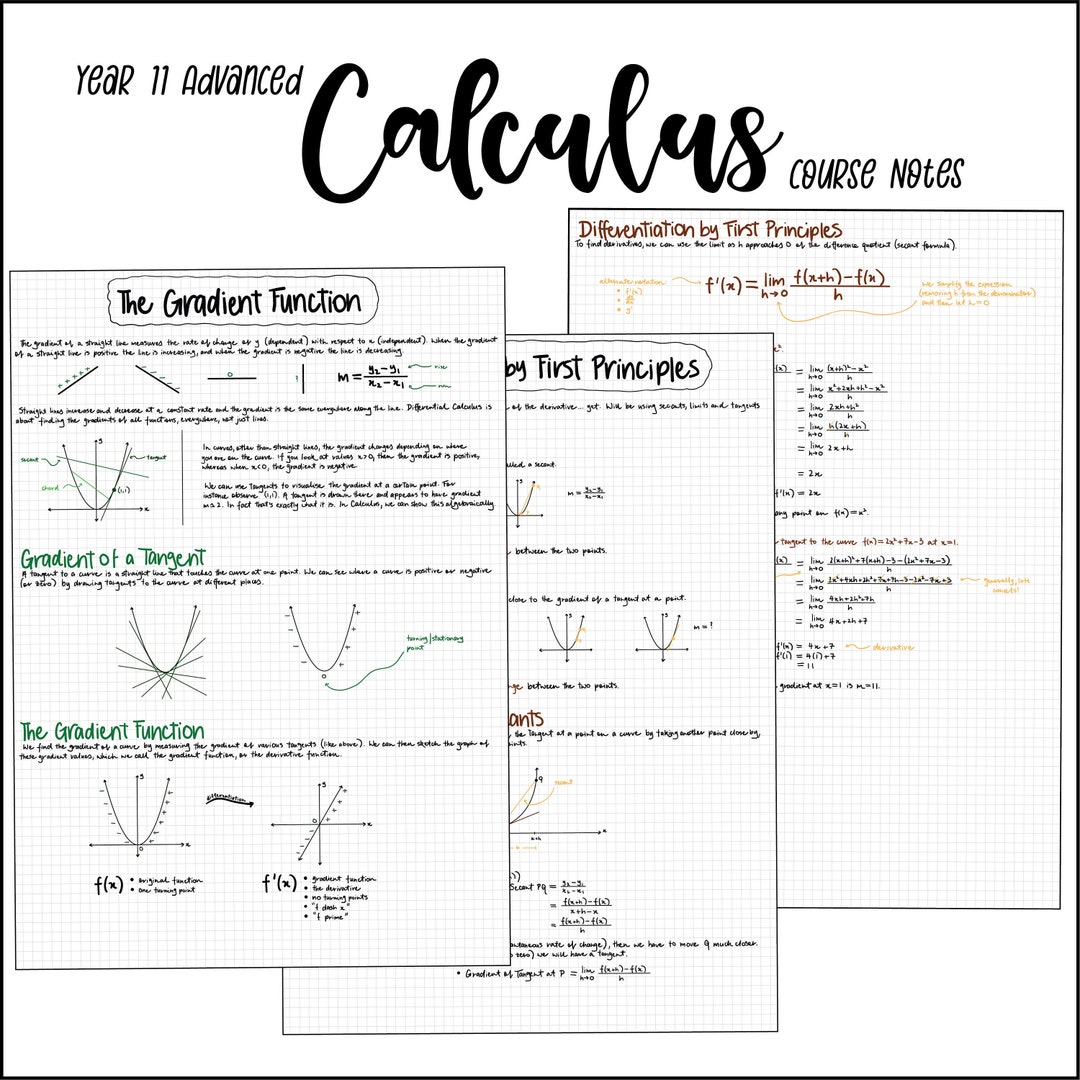 Year 11 Advanced
Calculus
course notes
The Gradient Function
The gradient of a straight line measures the rate of change of y (dependent) with respect to x (independent). When the gradient
of a straight line is positive the line is increasing, and when the gradient is negative the line is decreasing.
++++ ---- 0 ? m = y₂-y₁ / x₂-x₁ rise run
Straight lines increase and decrease at a constant rate and the gradient is the same everywhere along the line. Differential Calculus is
about finding the gradients of all functions, everywhere, not just lines.
secant
chord
y
tangent
(1,1)
x
In curves, other than straight lines, the gradient changes depending on where
you are on the curve. If you look at values x>0, then the gradient is positive,
whereas when x<0, the gradient is negative.
We can use tangents to visualise the gradient at a certain point. For
instance observe (1,1). A tangent is drawn there and appears to have gradient
m=2. In fact that's exactly what it is. In Calculus, we can show this algebraically.
Gradient of a Tangent
A tangent to a curve is a straight line that touches the curve at one point. We can see where a curve is positive or negative
(or zero) by drawing tangents to the curve at different places.
turning/stationary
point
0
The Gradient Function
We find the gradient of a curve by measuring the gradient of various tangents (like above). We can then sketch the graph of
these gradient values, which we call the gradient function, or the derivative function.
y
differentiation
y
0
x
0
x
f(x)
• original function
• one turning point
f'(x)
• gradient function
• the derivative
• no turning points
• "f dash x"
• "f prime"
by First Principles
of the derivative... get. Will be using secants, limits and tangents
called a secant.
m = y₂-y₁ / x₂-x₁
between the two points.
close to the gradient of a tangent at a point.
m = ?
between the two points.
ants
the tangent at a point on a curve by taking another point close by,
Q
secant
x+h
x
Secant PQ = y₂-y₁ / x₂-x₁
= f(x+h)-f(x) / x+h-x
= f(x+h)-f(x) / h
antaneous rate of change), then we have to move Q much closer.
zero) we will have a tangent.
• Gradient of Tangent at P = lim h→0 f(x+h)-f(x) / h
Differentiation by First Principles
To find derivatives, we can use the limit as h approaches 0 of the difference quotient (secant formula).
alternate notation
• f'(x)
• dy/dx
• y'
f'(x) = lim h→0 f(x+h)-f(x) / h
We simplify the expression
(removing h from the denominator)
and then let h=0
= lim h→0 (x+h)²-x² / h
= lim h→0 x²+2xh+h²-x² / h
= lim h→0 2xh+h² / h
= lim h→0 h(2x+h) / h
= lim h→0 2x+h
= 2x
f'(x) = 2x
any point on f(x)=x².
tangent to the curve f(x)=2x²+7x-3 at x=1.
= lim h→0 2(x+h)²+7(x+h)-3-(2x²+7x-3) / h
= lim h→0 2x²+4xh+2h²+7x+7h-3-2x²-7x+3 / h
generally, lots
cancels!
= lim h→0 4xh+2h²+7h / h
= lim h→0 4x+2h+7
f'(x) = 4x+7
derivative
f'(1) = 4(1)+7
= 11
gradient at x=1 is m=11.